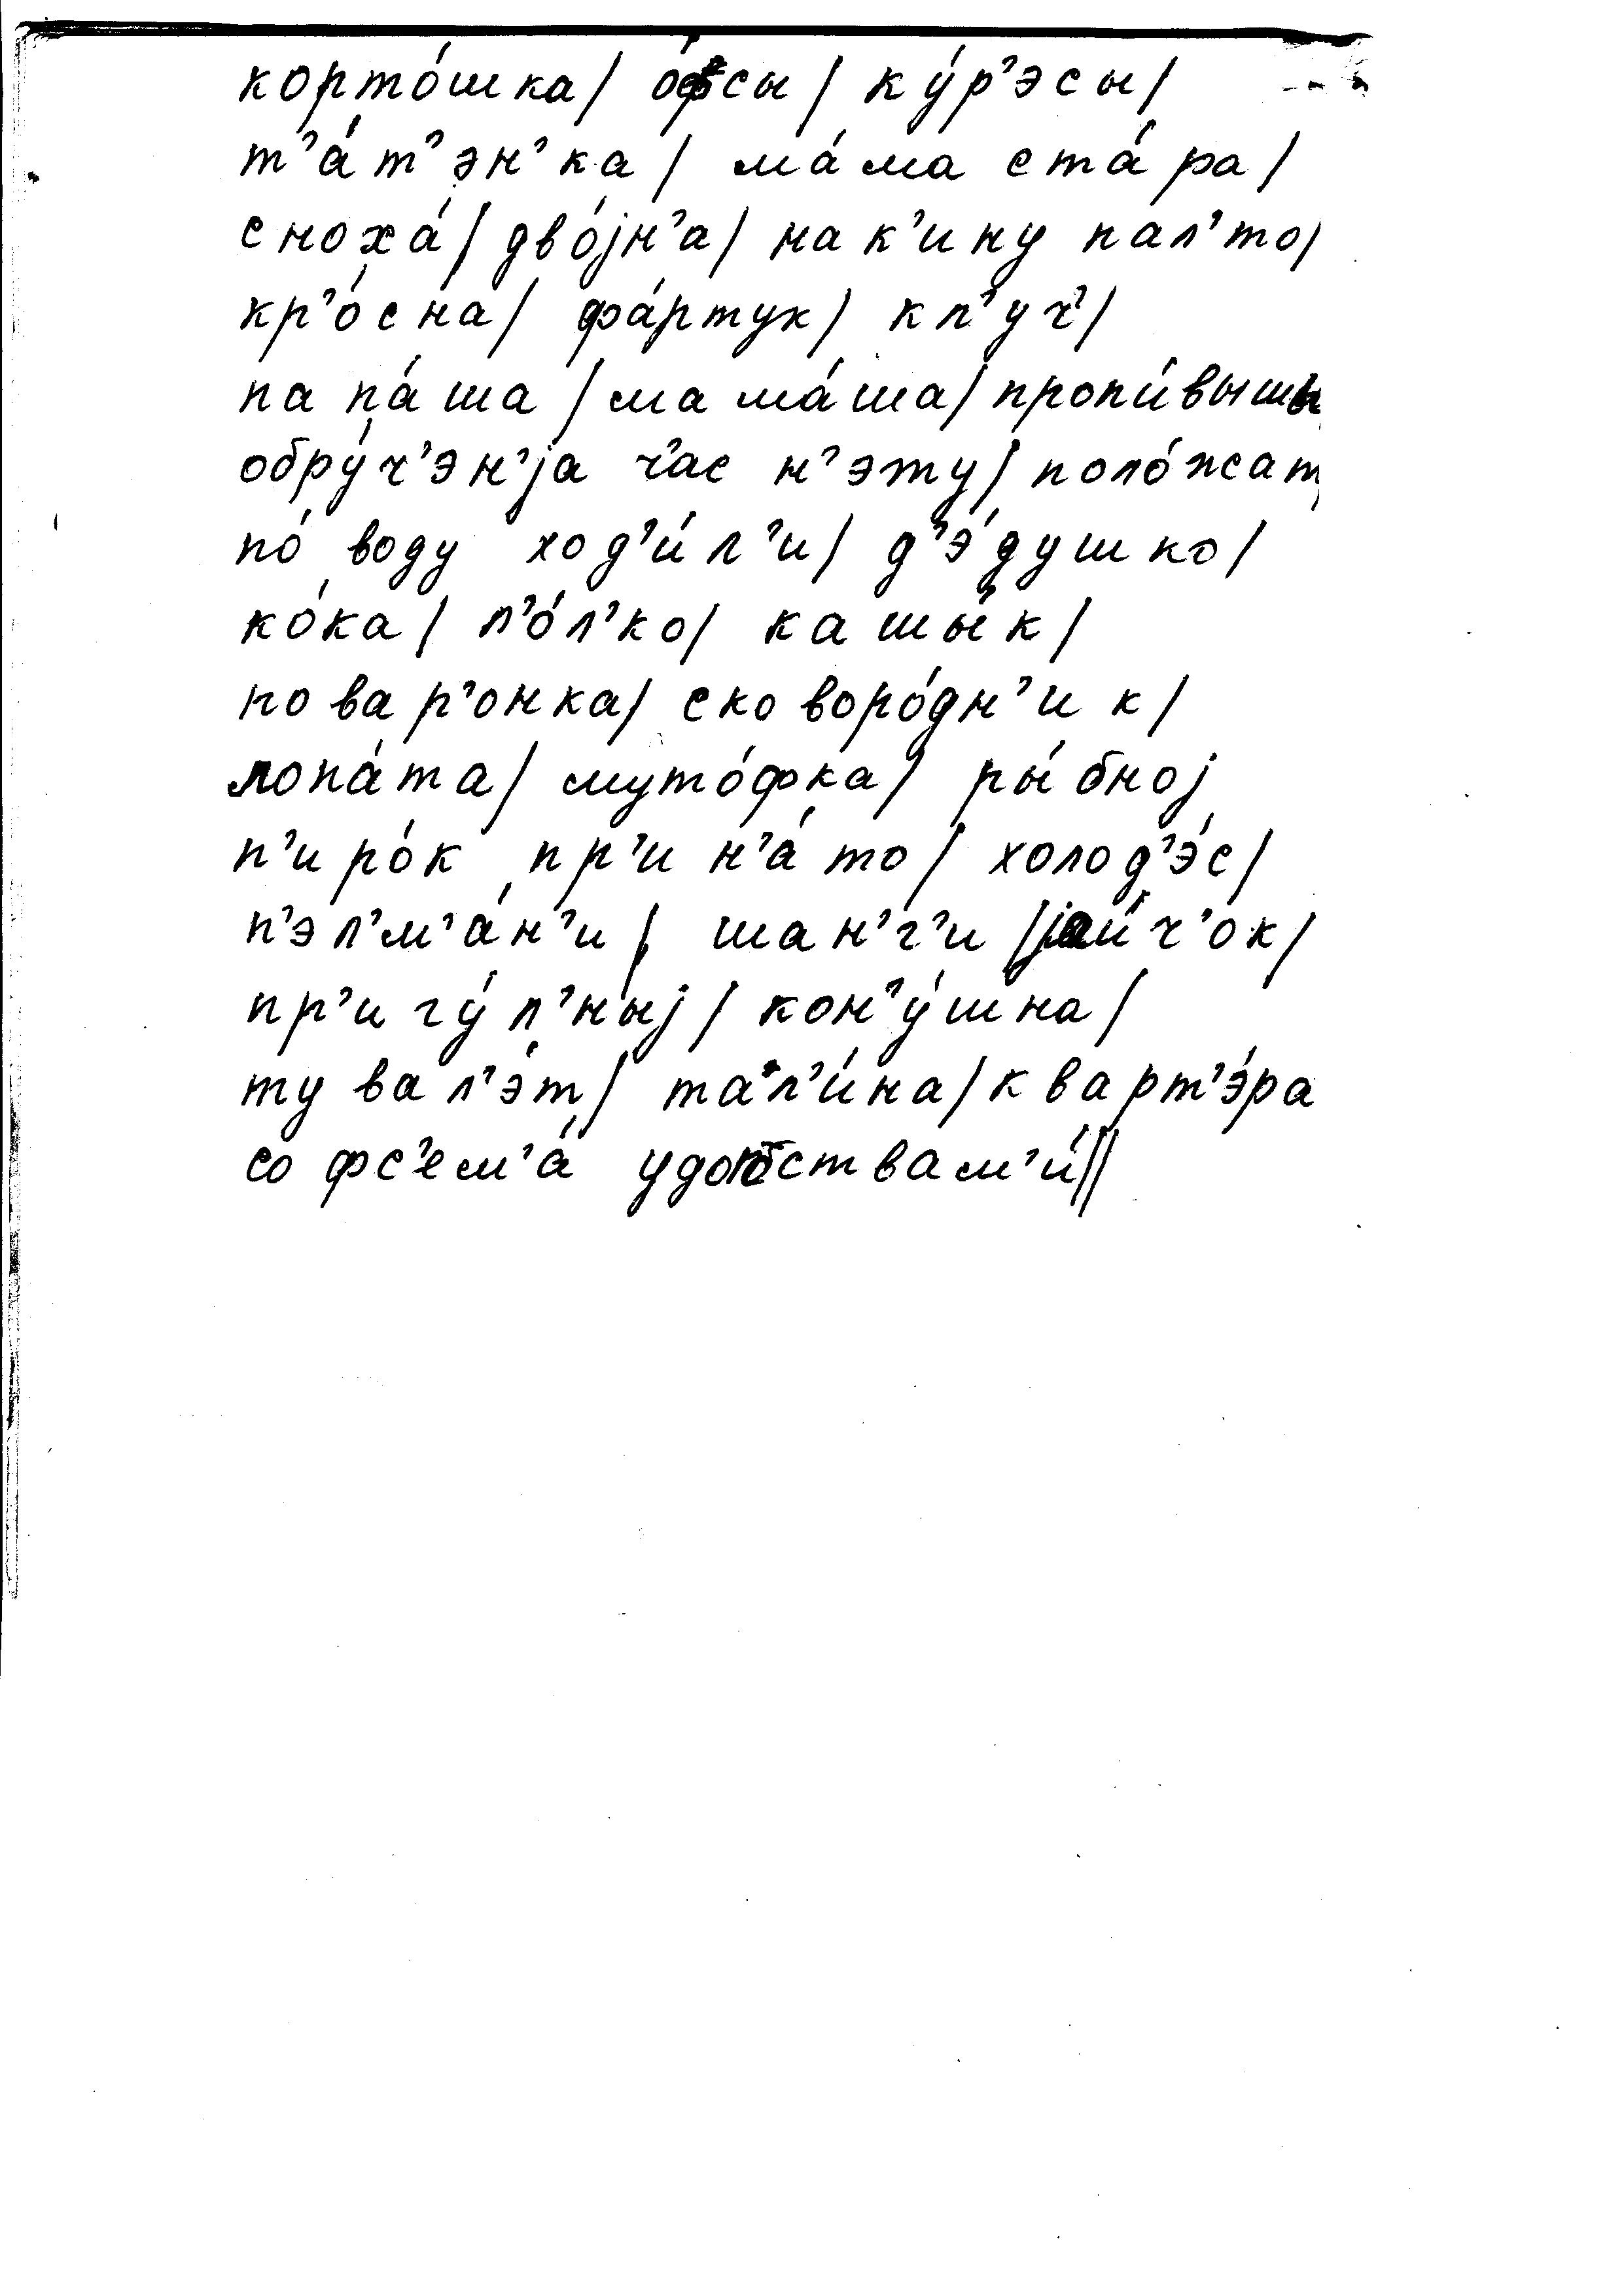 корто́шка/ о́фсы/ ку́р’эсы/
т’а́т’эн’ка/ ма́ма ста́ра/
сноха́/ дво́jн’а/ нак’ину пал’то/
кр’о́сна/ фа́ртук/ кл’уч’/
папа́ша/ мама́ша/ пропи́вышы
обру́ч’эн’jа ч’ас н’эту/ поло́жат
по́ воду ход’и́л’и/ д’э́душко/
ко́ка/ л’о́л’ко/ кашы́к/
повар’онка/ сковоро́дн’ик/
лопа́та/ муто́фка/ ры́бноj
п’иро́к пр’ин’а́то/ холод’э́с/
п’эл’м’а́н’и/ шан’г’и/ jаи́ч’ок/
пр’игу́л’ныj/ кон’у́шна/
тувал’э́т/ тал’и́на/ кварт’э́ра
со фс’ем’а́ удопствам’и́//